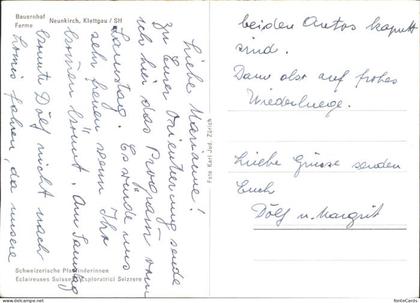 Bauernhof
Ferme
Neunkirch, Klettgau / SH
Liebe Marianne!
Zu Eurer Orientierung sende
ich hier das Programm vom
Samstag. Es würde uns
sehr freuen wenn Ihr
kommen könnt. Am Samstag
konnte Dölf nicht nach
fahren, da unsere
beiden Autos kaputt
sind.
Dann also auf frohes
Wiederluege.
Liebe Grüsse senden
Euch
Dölf u. Margrit
Schweizerische Pfadfinderinnen
Eclaireuses Suisses Esploratrici Svizzere
Zürich